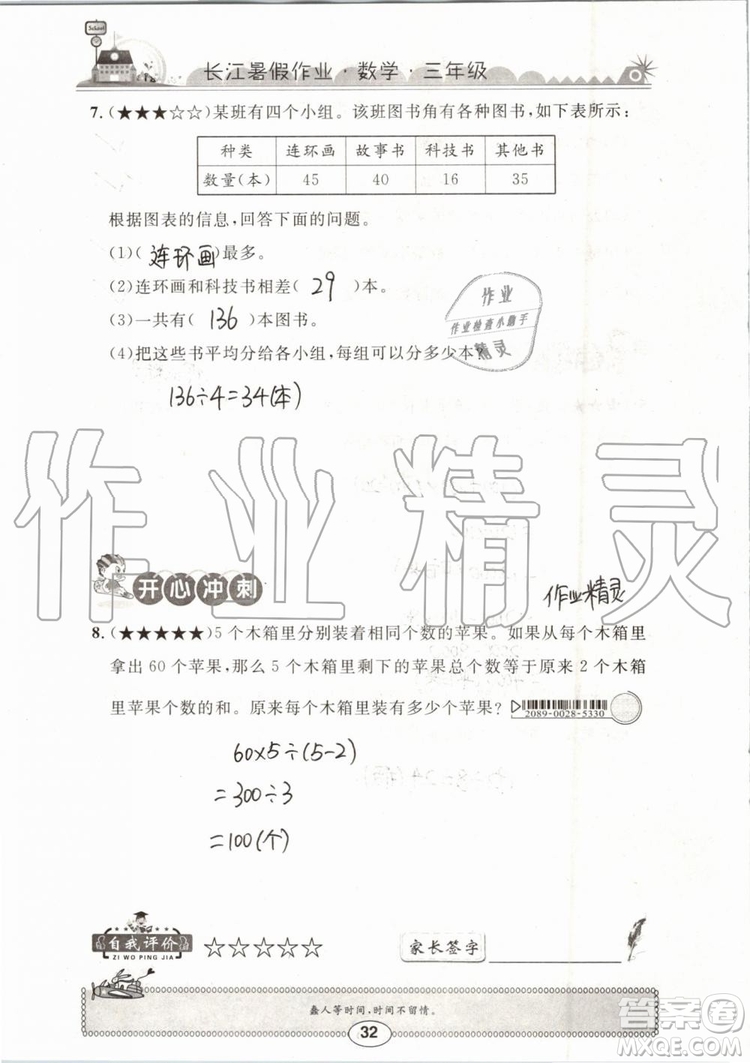 School
长江暑假作业·数学·三年级
7.(★★★☆☆)某班有四个小组。该班图书角有各种图书,如下表所示:
种类 连环画 故事书 科技书 其他书
数量(本) 45 40 16 35
根据图表的信息,回答下面的问题。
(1)( 连环画 )最多。
(2)连环画和科技书相差( 29 )本。
(3)一共有( 136 )本图书。
(4)把这些书平均分给各小组,每组可以分多少本
作业
作业检查小助手
精灵
136÷4=34(本)
作业精灵
开心冲刺
作业精灵
8.(★★★★★)5个木箱里分别装着相同个数的苹果。如果从每个木箱里
拿出60个苹果,那么5个木箱里剩下的苹果总个数等于原来2个木箱
里苹果个数的和。原来每个木箱里装有多少个苹果?
2089-0028-5330
60×5÷(5-2)
=300÷3
=100(个)
自我评价 ☆☆☆☆☆
ZI WO PING JIA
家长签字
蠢人等时间,时间不留情。
32
答案圈
MXQE.COM